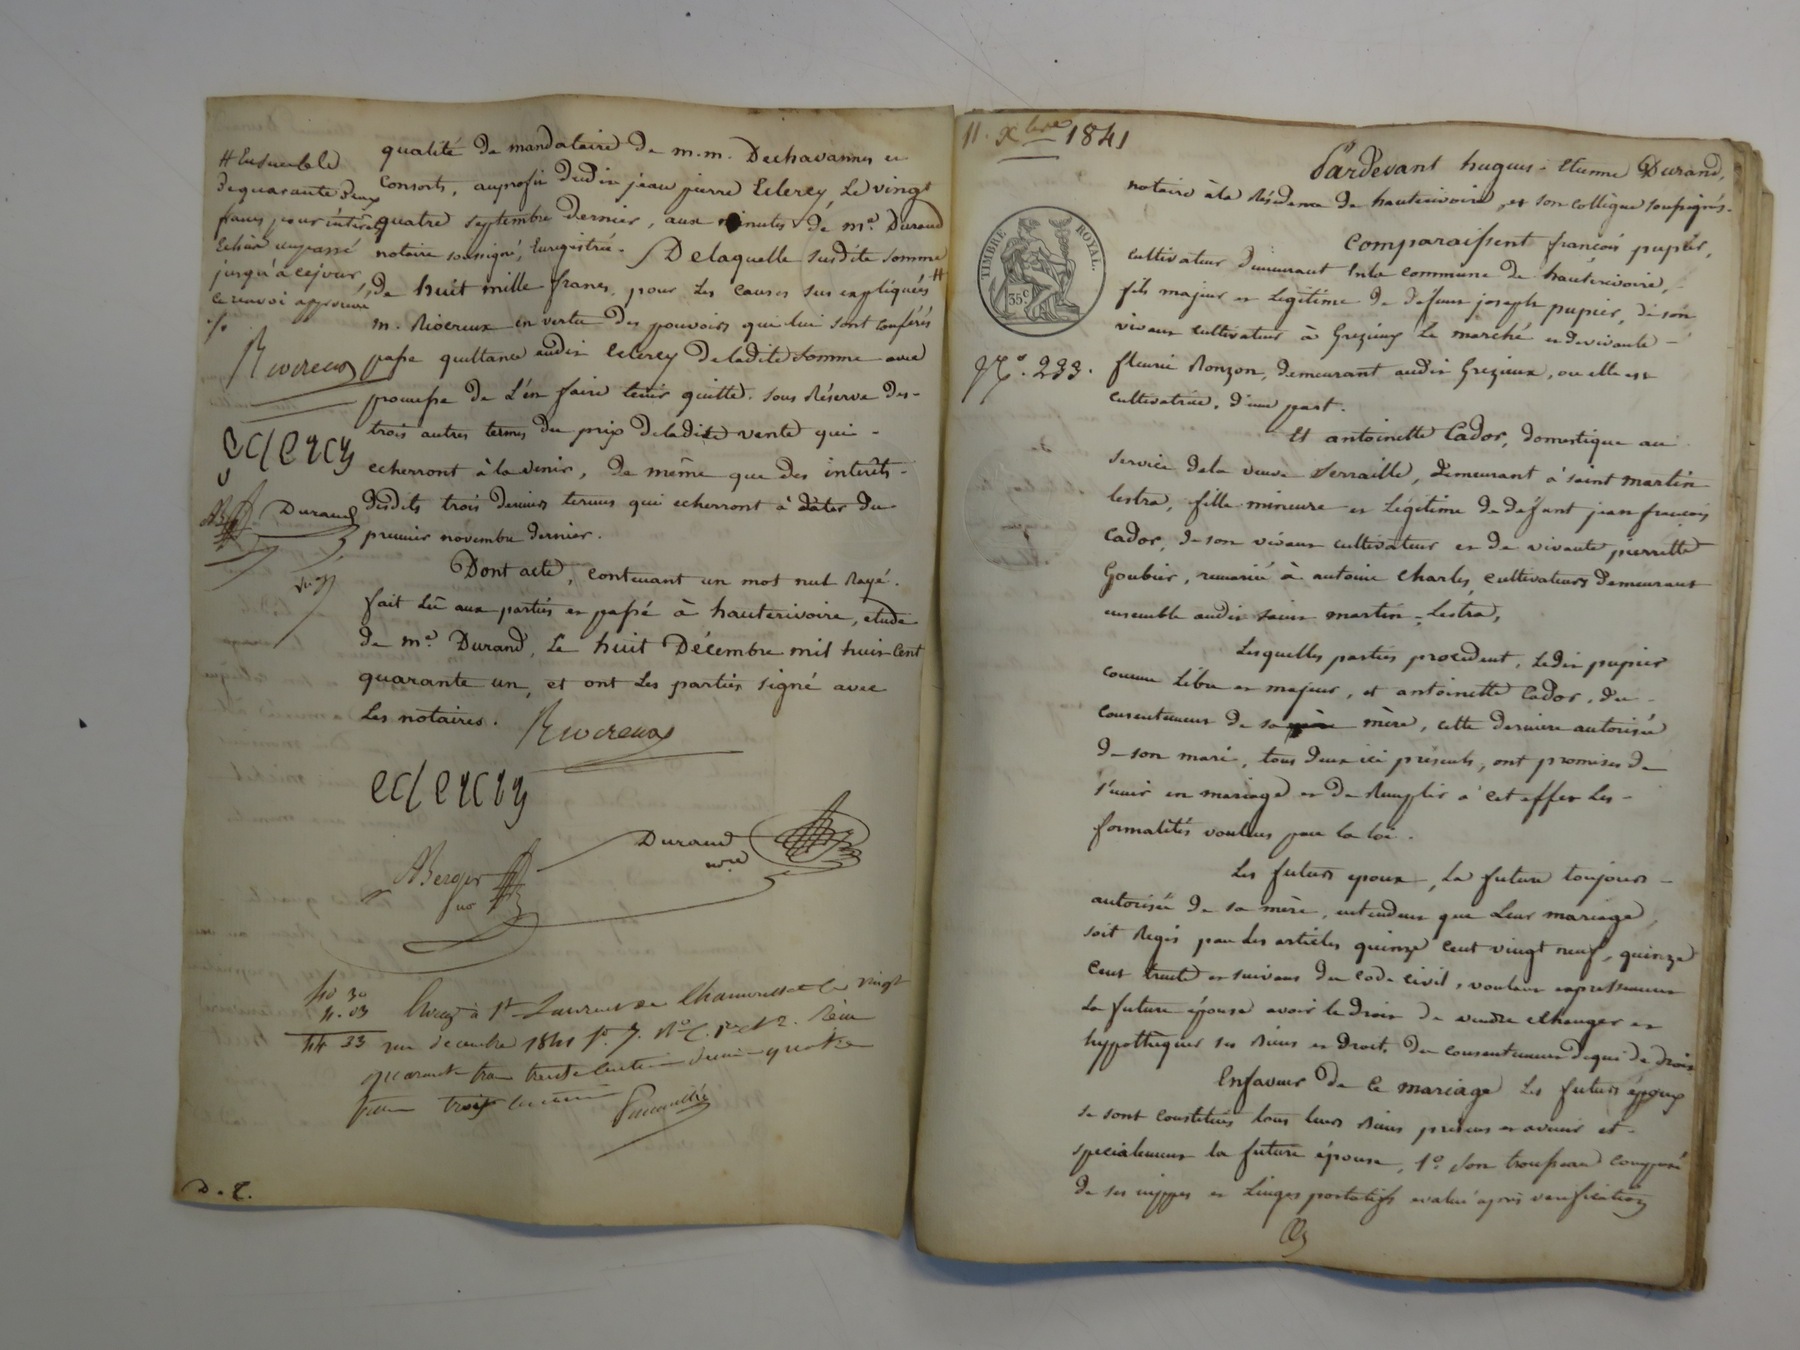 qualité de mandataire de m.m. Dechavannes et
consorts, au profit dudit jean pierre Eclercy, Le vingt
quatre septembre dernier, aux minutes de me. Durand
notaire soussigné, Enregistrée. Delaquelle susdite somme
de huit mille francs, pour Les causes sus expliquées #
m. Rivoreux en vertu des pouvoirs qui lui sont conférés
passe quittance audit eclercy de ladite somme avec
promesse de L'en faire tenir quitte. sous Réserve des
trois autres termes du prix de ladite vente qui
echerront à la venir, de même que des interêts
desdits trois derniers termes qui echerront à dater du
premier novembre dernier.
Dont acte, contenant un mot nul Rayé.
fait Lû aux parties et passé à hauterivoire, etude
de me. Durand, Le huit Décembre mil huit Cent
quarante un, et ont Les parties signé avec
Les notaires.
Rivoreux
eclercy
Durand
nre
ABerger
# Ensemble de
de quarante deux
francs pour intérêts
Echus au passé
jusqu'à ce jour,
ce renvoi approuvé
Rivoreux
eclercy
Durand
30
3. 03
33
Enreg. à St. Laurent de Chamousset Le vingt
un décembre 1841 fo. 7. Ro. C. 1re et 2. Reçu
quarante francs trente centimes
francs trois centimes
D. E.
11. Xbre 1841
Pardevant hugues-Etienne Durand,
notaire à la Résidence de hauterivoire, et son collègue soussignés.
Comparaissent françois pupier,
cultivateur demeurant En la commune de hauterivoire,
fils majeur et Légitime de défunt joseph pupier, de son
vivant cultivateur à Grezieux Le marché et de vivante
fleurie Ronzon, demeurant audit Grezieux, ou elle est
cultivatrice, d'une part.
TIMBRE ROYAL.
35c
No. 233.
Et antoinette Cador, domestique au
service de la veuve Serraille, demeurant à saint martin
lestra, fille mineure et Légitime de défunt jean françois
Cador, de son vivant cultivateur et de vivante pierrette
Goubier, remariée à antoine Charles, cultivateurs demeurant
ensemble audit saint martin-Lestra,
Lesquelles parties procédent, Ledit pupier
comme Libre et majeur, et antoinette Cador, du
consentement de sa mère, cette dernière autorisée
de son mari, tous deux ici présents, ont promises de
s'unir en mariage et de Remplir à cet effet Les
formalités voulues par la loi.
Les futurs epoux, La future toujours
autorisée de sa mère, entendent que Leur mariage
soit Regis par Les articles quinze cent vingt neuf, quinze
Cent trente et suivans du code civil, voulant expressement
La future épouse avoir le droit de vendre echanger et
hypothequer ses Biens et Droits, du consentement de qui de droit
En faveur de Ce mariage Les futurs époux
se sont constitués tous leurs Biens présens et avenir et
specialement la future épouse, 1o. son trousseau composé
de ses nippes et Linges portatifs evalué après verification